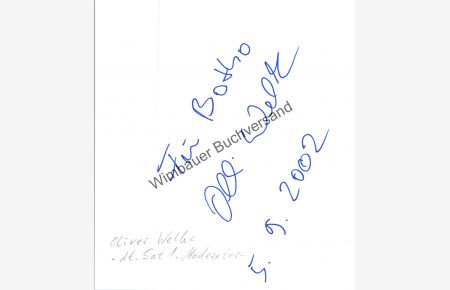 Für Botho
Oli. Welke
5. 9. 2002
Wimbauer Buchversand
Oliver Welke
-dt. Sat 1. Moderator-